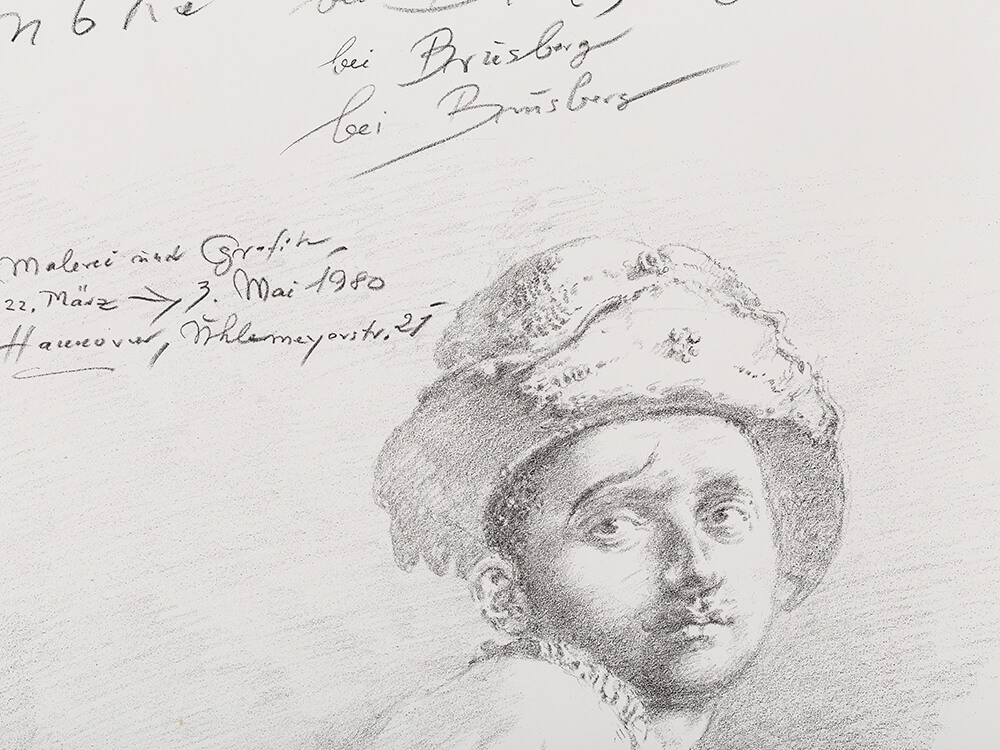 bei Brüsberg
bei Brüsberg
Malerei und Grafik,
22. März → 3. Mai 1980
Hannover, Uhlemeyerstr. 21